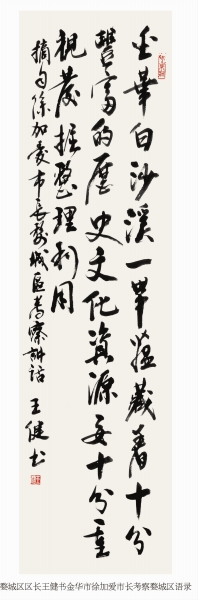 金华白沙溪一带蕴藏着十分
丰富的历史文化资源要十分重
视发掘整理利用
摘句徐加爱市长婺城区考察讲话 王健书
婺城区区长王健书金华市徐加爱市长考察婺城区语录